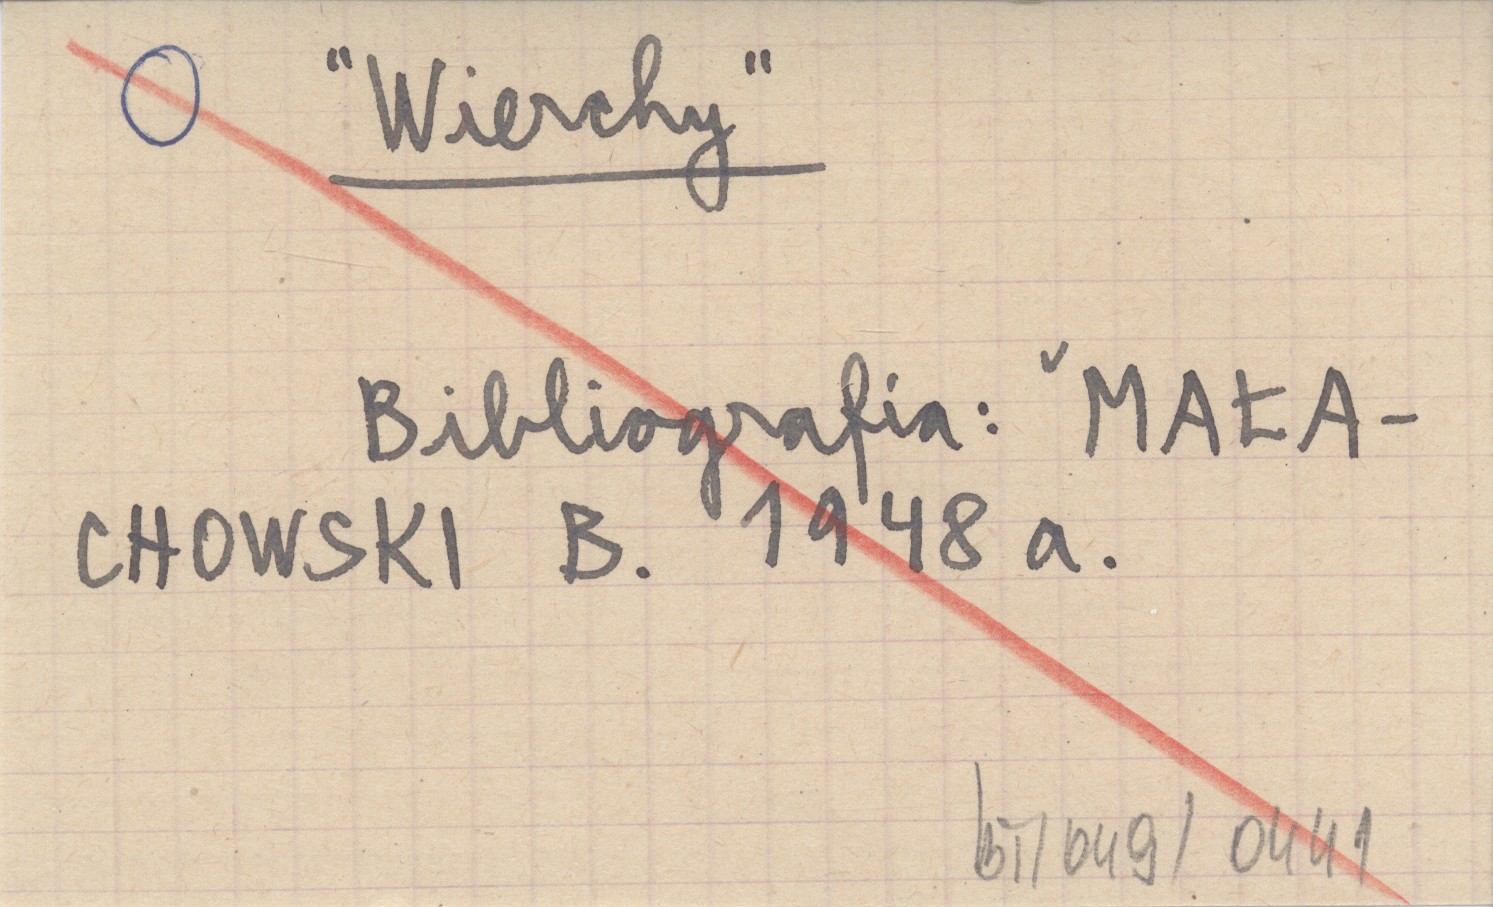 "Wierchy"
Bibliografia: ˇMAŁA-
CHOWSKI B. 1948 a.
BT/049/ 0441